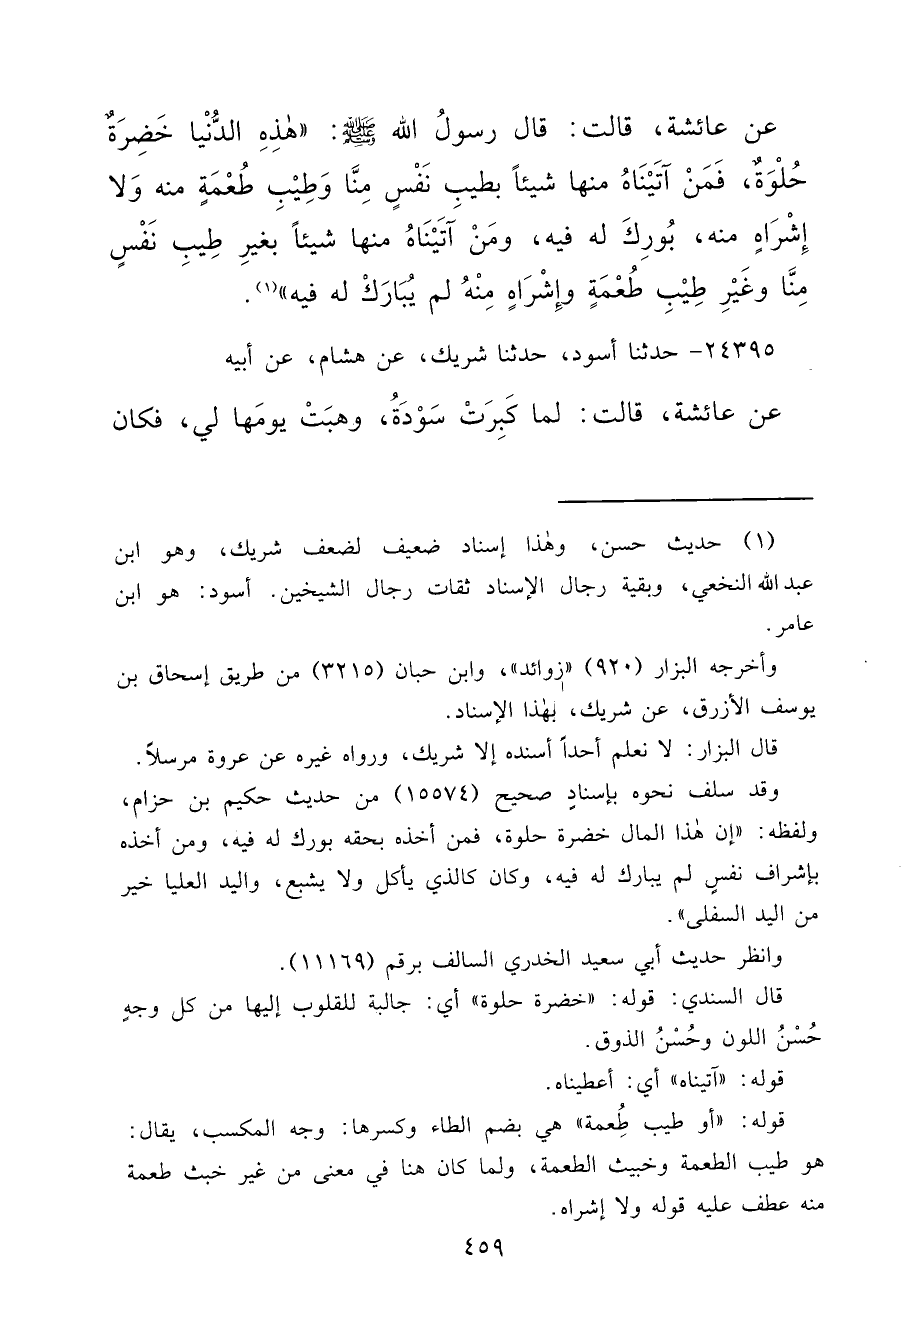 عن عائشة، قالت: قال رسولُ الله ﷺ: «هٰذِهِ الدُّنْيا خَضِرَةٌ
حُلْوَةٌ، فَمَنْ آتَيْنَاهُ منها شيئاً بطيبِ نَفْسٍ مِنَّا وَطِيْبِ طُعْمَةٍ منه وَلا
إِشْرَاهٍ منه، بُورِكَ له فيه، ومَنْ آتَيْنَاهُ منها شيئاً بغيرِ طِيبِ نَفْسٍ
مِنَّا وغَيْرِ طِيْبِ طُعْمَةٍ وإِشْرَاهٍ مِنْهُ لم يُبَارَكْ له فيه»(١).
٢٤٣٩٥- حدثنا أسود، حدثنا شريك، عن هشام، عن أبيه
عن عائشة، قالت: لما كَبِرَتْ سَوْدَةُ، وهبَتْ يومَها لي، فكان
(١) حديث حسن، وهٰذا إسناد ضعيف لضعف شريك، وهو ابن
عبد الله النخعي، وبقية رجال الإسناد ثقات رجال الشيخين. أسود: هو ابن
عامر.
وأخرجه البزار (٩٢٠) «زوائد»، وابن حبان (٣٢١٥) من طريق إسحاق بن
يوسف الأزرق، عن شريك، بهٰذا الإسناد.
قال البزار: لا نعلم أحداً أسنده إلا شريك، ورواه غيره عن عروة مرسلاً.
وقد سلف نحوه بإسنادٍ صحيح (١٥٥٧٤) من حديث حكيم بن حزام،
ولفظه: «إن هٰذا المال خضرة حلوة، فمن أخذه بحقه بورك له فيه، ومن أخذه
بإشراف نفسٍ لم يبارك له فيه، وكان كالذي يأكل ولا يشبع، واليد العليا خير
من اليد السفلى».
وانظر حديث أبي سعيد الخدري السالف برقم (١١١٦٩).
قال السندي: قوله: «خضرة حلوة» أي: جالبة للقلوب إليها من كل وجهٍ
حُسْنُ اللون وحُسْنُ الذوق.
قوله: «آتيناه» أي: أعطيناه.
قوله: «أو طيب طُِعمة» هي بضم الطاء وكسرها: وجه المكسب، يقال:
هو طيب الطعمة وخبيث الطعمة، ولما كان هنا في معنى من غير خبث طعمة
منه عطف عليه قوله ولا إشراه.
٤٥٩